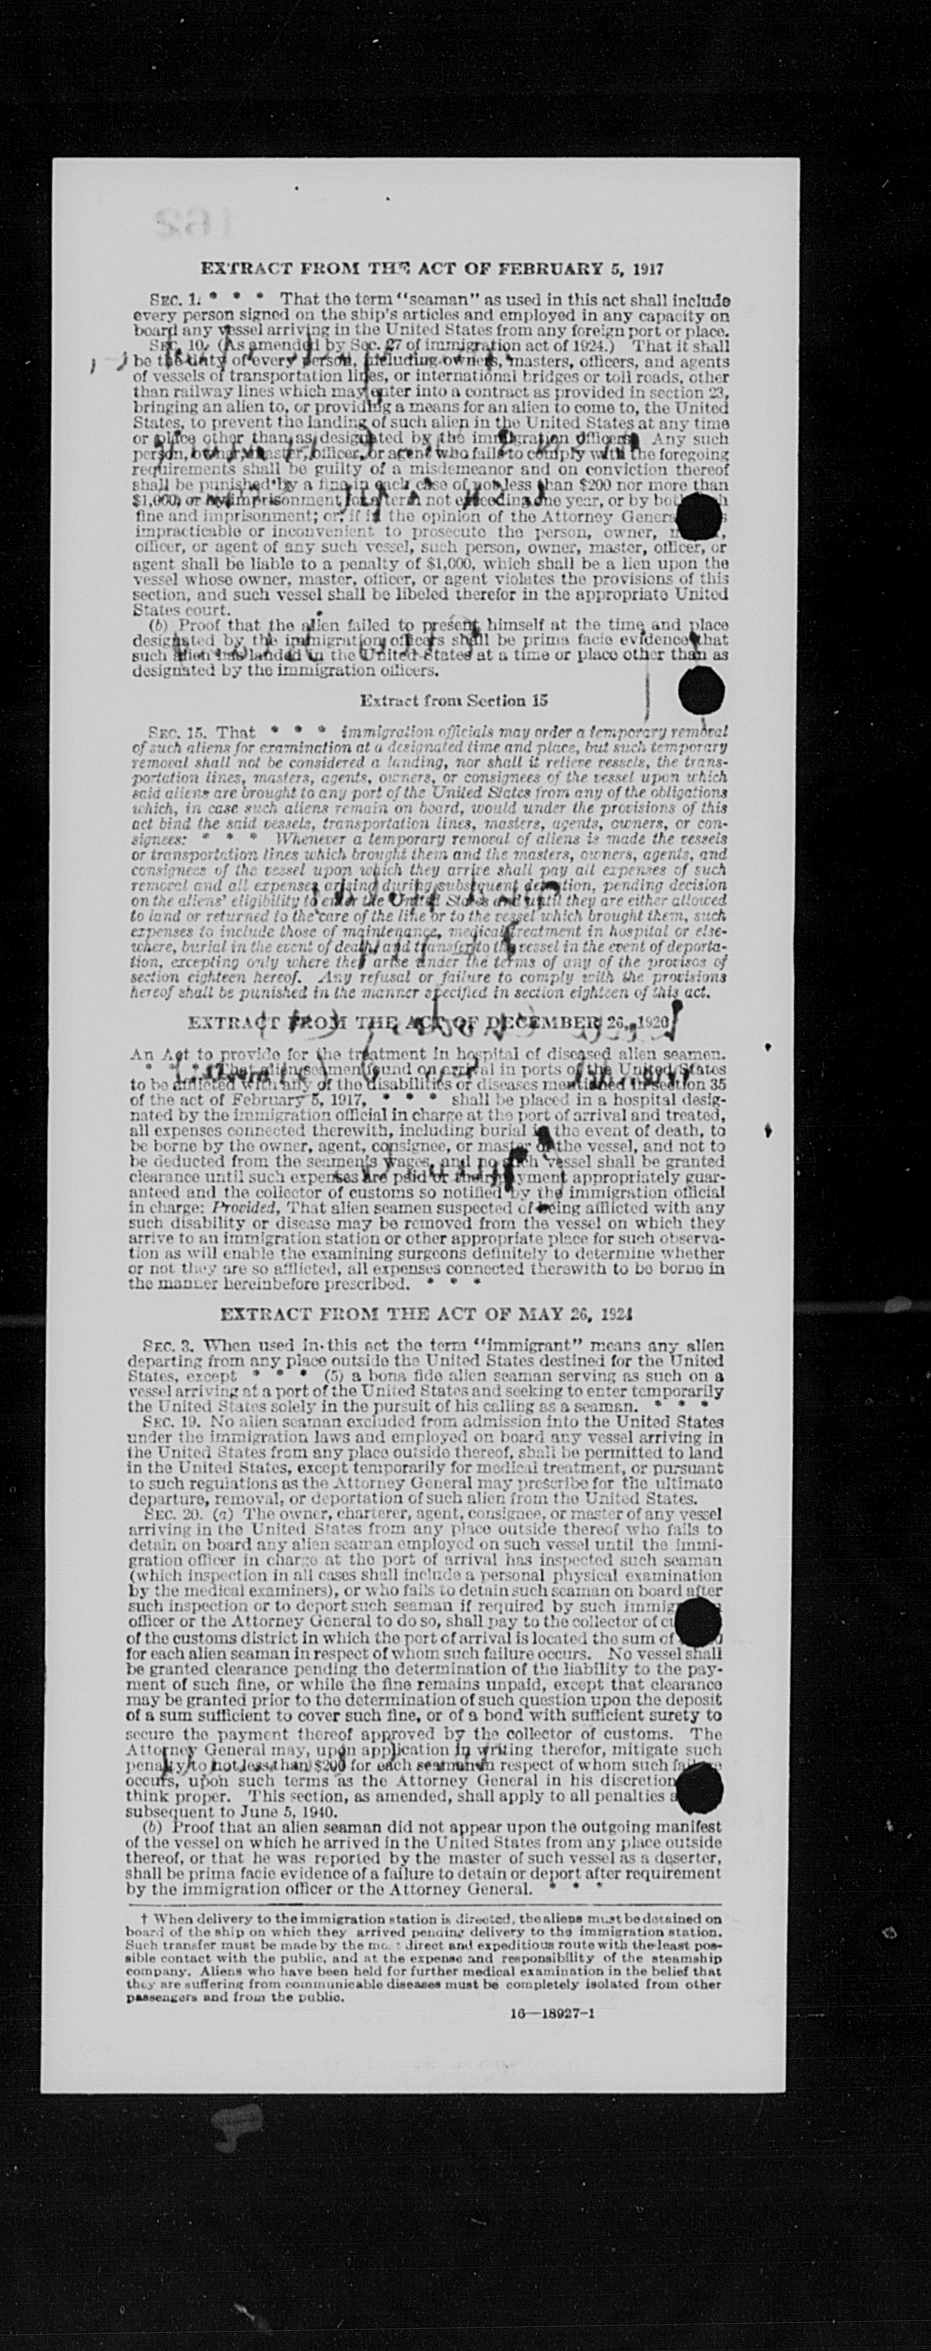 EXTRACT FROM THE ACT OF FEBRUARY 5, 1917
SEC. 1. * * * That the term "seaman" as used in this act shall include
every person signed on the ship's articles and employed in any capacity on
board any vessel arriving in the United States from any foreign port or place.
SEC. 10. (As amended by Sec. 27 of immigration act of 1924.) That it shall
be the duty of every person, including owners, masters, officers, and agents
of vessels of transportation lines, or international bridges or toll roads, other
than railway lines which may enter into a contract as provided in section 23,
bringing an alien to, or providing a means for an alien to come to, the United
States, to prevent the landing of such alien in the United States at any time
or place other than as designated by the immigration officers. Any such
person, owner, master, officer, or agent who fails to comply with the foregoing
requirements shall be guilty of a misdemeanor and on conviction thereof
shall be punished by a fine in each case of not less than $200 nor more than
$1,000, or by imprisonment for a term not exceeding one year, or by both
fine and imprisonment; or, if in the opinion of the Attorney General
impracticable or inconvenient to prosecute the person, owner,
officer, or agent of any such vessel, such person, owner, master, officer, or
agent shall be liable to a penalty of $1,000, which shall be a lien upon the
vessel whose owner, master, officer, or agent violates the provisions of this
section, and such vessel shall be libeled therefor in the appropriate United
States court.
(b) Proof that the alien failed to present himself at the time and place
designated by the immigration officers shall be prima facie evidence that
such alien has landed in the United States at a time or place other than as
designated by the immigration officers.
Extract from Section 15
SEC. 15. That * * * immigration officials may order a temporary removal
of such aliens for examination at a designated time and place, but such temporary
removal shall not be considered a landing, nor shall it relieve vessels, the trans-
portation lines, masters, agents, owners, or consignees of the vessel upon which
said aliens are brought to any port of the United States from any of the obligations
which, in case such aliens remain on board, would under the provisions of this
act bind the said vessels, transportation lines, masters, agents, owners, or con-
signees: * * * Whenever a temporary removal of aliens is made the vessels
or transportation lines which brought them and the masters, owners, agents, and
consignees of the vessel upon which they arrive shall pay all expenses of such
removal and all expenses arising during subsequent detention, pending decision
on the aliens' eligibility to enter the United States and until they are either allowed
to land or returned to the care of the line or to the vessel which brought them, such
expenses to include those of maintenance, medical treatment in hospital or else-
where, burial in the event of death, and transfer to the vessel in the event of deporta-
tion, excepting only where they arise under the terms of any of the provisos of
section eighteen hereof. Any refusal or failure to comply with the provisions
hereof shall be punished in the manner specified in section eighteen of this act.
EXTRACT FROM THE ACT OF DECEMBER 26, 1920
An Act to provide for the treatment in hospital of diseased alien seamen.
* * That alien seamen found on arrival in ports of the United States
to be afflicted with any of the disabilities or diseases mentioned in section 35
of the act of February 5, 1917, * * * shall be placed in a hospital desig-
nated by the immigration official in charge at the port of arrival and treated,
all expenses connected therewith, including burial in the event of death, to
be borne by the owner, agent, consignee, or master of the vessel, and not to
be deducted from the seamen's wages, and no such vessel shall be granted
clearance until such expenses are paid or their payment appropriately guar-
anteed and the collector of customs so notified by the immigration official
in charge: Provided, That alien seamen suspected of being afflicted with any
such disability or disease may be removed from the vessel on which they
arrive to an immigration station or other appropriate place for such observa-
tion as will enable the examining surgeons definitely to determine whether
or not they are so afflicted, all expenses connected therewith to be borne in
the manner hereinbefore prescribed. * * *
EXTRACT FROM THE ACT OF MAY 26, 1924
SEC. 3. When used in this act the term "immigrant" means any alien
departing from any place outside the United States destined for the United
States, except * * * (5) a bona fide alien seaman serving as such on a
vessel arriving at a port of the United States and seeking to enter temporarily
the United States solely in the pursuit of his calling as a seaman. * * *
SEC. 19. No alien seaman excluded from admission into the United States
under the immigration laws and employed on board any vessel arriving in
the United States from any place outside thereof, shall be permitted to land
in the United States, except temporarily for medical treatment, or pursuant
to such regulations as the Attorney General may prescribe for the ultimate
departure, removal, or deportation of such alien from the United States.
SEC. 20. (a) The owner, charterer, agent, consignee, or master of any vessel
arriving in the United States from any place outside thereof who fails to
detain on board any alien seaman employed on such vessel until the immi-
gration officer in charge at the port of arrival has inspected such seaman
(which inspection in all cases shall include a personal physical examination
by the medical examiners), or who fails to detain such seaman on board after
such inspection or to deport such seaman if required by such
officer or the Attorney General to do so, shall pay to the collector of
of the customs district in which the port of arrival is located the sum of
for each alien seaman in respect of whom such failure occurs. No vessel shall
be granted clearance pending the determination of the liability to the pay-
ment of such fine, or while the fine remains unpaid, except that clearance
may be granted prior to the determination of such question upon the deposit
of a sum sufficient to cover such fine, or of a bond with sufficient surety to
secure the payment thereof approved by the collector of customs. The
Attorney General may, upon application in writing therefor, mitigate such
penalty to not less than $200 for each seaman in respect of whom such failure
occurs, upon such terms as the Attorney General in his discretion
think proper. This section, as amended, shall apply to all penalties
subsequent to June 5, 1940.
(b) Proof that an alien seaman did not appear upon the outgoing manifest
of the vessel on which he arrived in the United States from any place outside
thereof, or that he was reported by the master of such vessel as a deserter,
shall be prima facie evidence of a failure to detain or deport after requirement
by the immigration officer or the Attorney General. * * *
† When delivery to the immigration station is directed, the aliens must be detained on
board of the ship on which they arrived pending delivery to the immigration station.
Such transfer must be made by the most direct and expeditious route with the least pos-
sible contact with the public, and at the expense and responsibility of the steamship
company. Aliens who have been held for further medical examination in the belief that
they are suffering from communicable diseases must be completely isolated from other
passengers and from the public.
16—18927-1